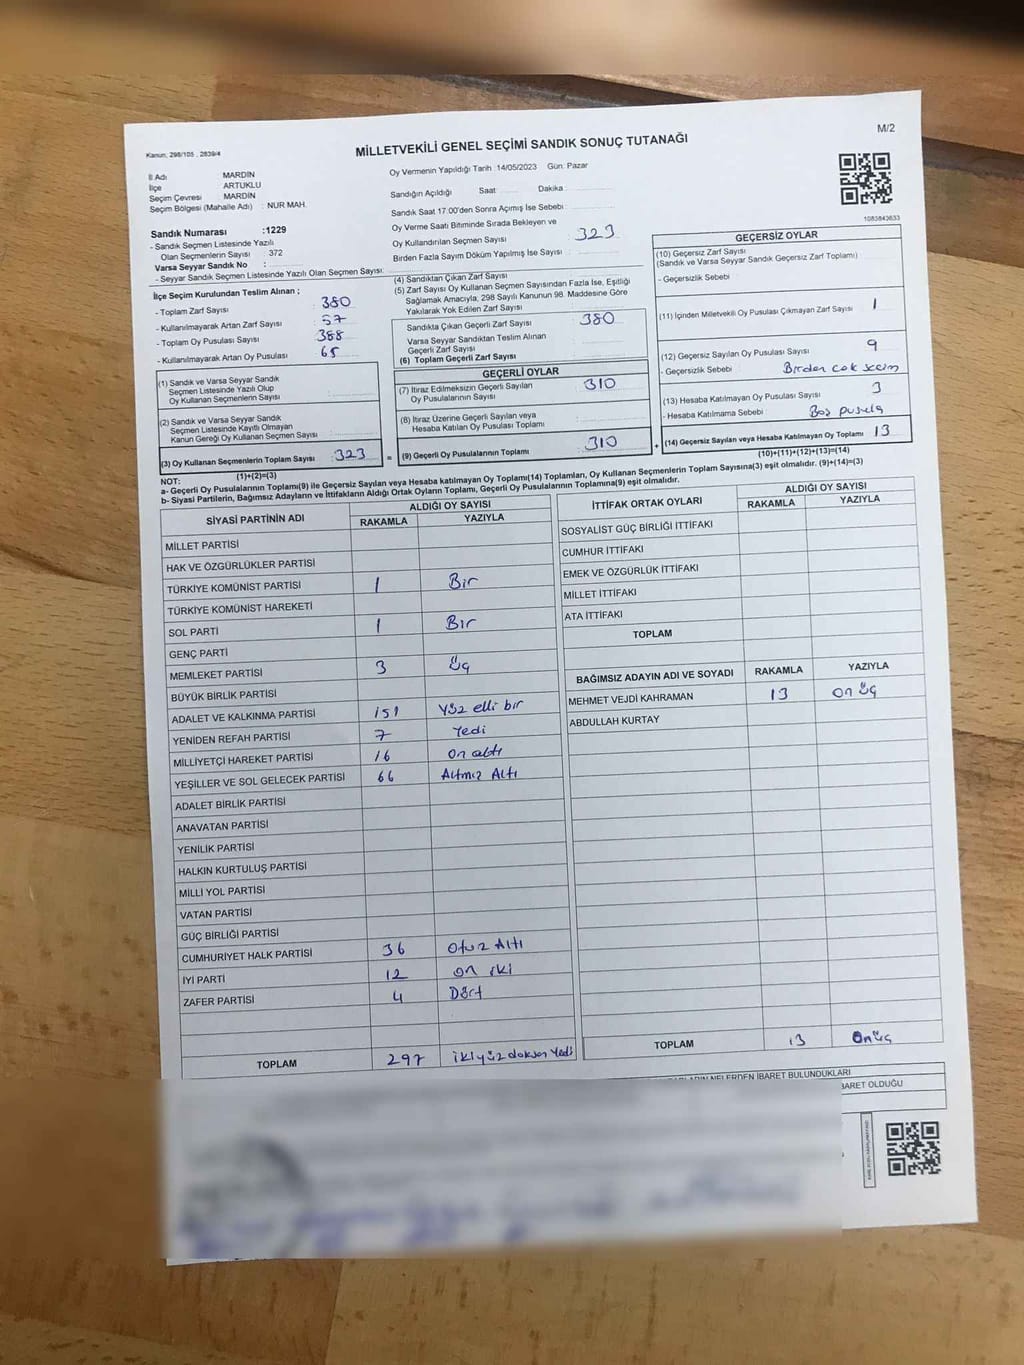 M/2
Kanun, 298/105 , 2839/4
MİLLETVEKİLİ GENEL SEÇİMİ SANDIK SONUÇ TUTANAĞI
İl Adı MARDİN
İlçe ARTUKLU
Seçim Çevresi MARDİN
Seçim Bölgesi (Mahalle Adı) : NUR MAH.
Oy Vermenin Yapıldığı Tarih :14/05/2023 Gün: Pazar
Sandığın Açıldığı Saat Dakika :
Sandık Saat 17.00'den Sonra Açımış İse Sebebi :
Oy Verme Saati Bitiminde Sırada Bekleyen ve
Oy Kullandırılan Seçmen Sayısı 323
Birden Fazla Sayım Döküm Yapılmış İse Sayısı :
1083843633
Sandık Numarası :1229
- Sandık Seçmen Listesinde Yazılı
Olan Seçmenlerin Sayısı 372
Varsa Seyyar Sandık No :
- Seyyar Sandık Seçmen Listesinde Yazılı Olan Seçmen Sayısı:
İlçe Seçim Kurulundan Teslim Alınan ;
- Toplam Zarf Sayısı : 380
- Kullanılmayarak Artan Zarf Sayısı : 57
- Toplam Oy Pusulası Sayısı : 388
- Kullanılmayarak Artan Oy Pusulası : 65
(1) Sandık ve Varsa Seyyar Sandık
Seçmen Listesinde Yazılı Olup
Oy Kullanan Seçmenlerin Sayısı :
(2) Sandık ve Varsa Seyyar Sandık
Seçmen Listesinde Kayıtlı Olmayan
Kanun Gereği Oy Kullanan Seçmen Sayısı :
(3) Oy Kullanan Seçmenlerin Toplam Sayısı : 323
(1)+(2)=(3)
(4) Sandıktan Çıkan Zarf Sayısı
(5) Zarf Sayısı Oy Kullanan Seçmen Sayısından Fazla İse, Eşitliği
Sağlamak Amacıyla, 298 Sayılı Kanunun 98. Maddesine Göre
Yakılarak Yok Edilen Zarf Sayısı
Sandıkta Çıkan Geçerli Zarf Sayısı 380
Varsa Seyyar Sandıktan Teslim Alınan
Geçerli Zarf Sayısı
(6) Toplam Geçerli Zarf Sayısı
GEÇERLİ OYLAR
(7) İtiraz Edilmeksizin Geçerli Sayılan
Oy Pusulalarının Sayısı : 310
(8) İtiraz Üzerine Geçerli Sayılan veya
Hesaba Katılan Oy Pusulası Toplamı :
= (9) Geçerli Oy Pusulalarının Toplamı : 310 +
GEÇERSİZ OYLAR
(10) Geçersiz Zarf Sayısı
(Sandık ve Varsa Seyyar Sandık Geçersiz Zarf Toplamı) :
- Geçersizlik Sebebi :
(11) İçinden Milletvekili Oy Pusulası Çıkmayan Zarf Sayısı 1
(12) Geçersiz Sayılan Oy Pusulası Sayısı 9
- Geçersizlik Sebebi : Birden çok seçim
(13) Hesaba Katılmayan Oy Pusulası Sayısı 3
- Hesaba Katılmama Sebebi : Boş pusula
(14) Geçersiz Sayılan veya Hesaba Katılmayan Oy Toplamı 13
(10)+(11)+(12)+(13)=(14)
NOT:
a- Geçerli Oy Pusulalarının Toplamı(9) ile Geçersiz Sayılan veya Hesaba katılmayan Oy Toplamı(14) Toplamları, Oy Kullanan Seçmenlerin Toplam Sayısına(3) eşit olmalıdır. (9)+(14)=(3)
b- Siyasi Partilerin, Bağımsız Adayların ve İttifakların Aldığı Ortak Oyların Toplamı, Geçerli Oy Pusulalarının Toplamına(9) eşit olmalıdır.
SİYASİ PARTİNİN ADI ALDIĞI OY SAYISI
RAKAMLA YAZIYLA
MİLLET PARTİSİ
HAK VE ÖZGÜRLÜKLER PARTİSİ
TÜRKİYE KOMÜNİST PARTİSİ 1 Bir
TÜRKİYE KOMÜNİST HAREKETİ
SOL PARTİ 1 Bir
GENÇ PARTİ
MEMLEKET PARTİSİ 3 Üç
BÜYÜK BİRLİK PARTİSİ
ADALET VE KALKINMA PARTİSİ 151 Yüz elli bir
YENİDEN REFAH PARTİSİ 7 Yedi
MİLLİYETÇİ HAREKET PARTİSİ 16 On altı
YEŞİLLER VE SOL GELECEK PARTİSİ 66 Altmış Altı
ADALET BİRLİK PARTİSİ
ANAVATAN PARTİSİ
YENİLİK PARTİSİ
HALKIN KURTULUŞ PARTİSİ
MİLLİ YOL PARTİSİ
VATAN PARTİSİ
GÜÇ BİRLİĞİ PARTİSİ
CUMHURİYET HALK PARTİSİ 36 Otuz Altı
İYİ PARTİ 12 on iki
ZAFER PARTİSİ 4 Dört
TOPLAM 297 ikiyüz doksan Yedi
İTTİFAK ORTAK OYLARI ALDIĞI OY SAYISI
RAKAMLA YAZIYLA
SOSYALİST GÜÇ BİRLİĞİ İTTİFAKI
CUMHUR İTTİFAKI
EMEK VE ÖZGÜRLÜK İTTİFAKI
MİLLET İTTİFAKI
ATA İTTİFAKI
TOPLAM
BAĞIMSIZ ADAYIN ADI VE SOYADI RAKAMLA YAZIYLA
MEHMET VEJDİ KAHRAMAN 13 on üç
ABDULLAH KURTAY
TOPLAM 13 Onüç
NELERDEN İBARET BULUNDUKLARI
İBARET OLDUĞU